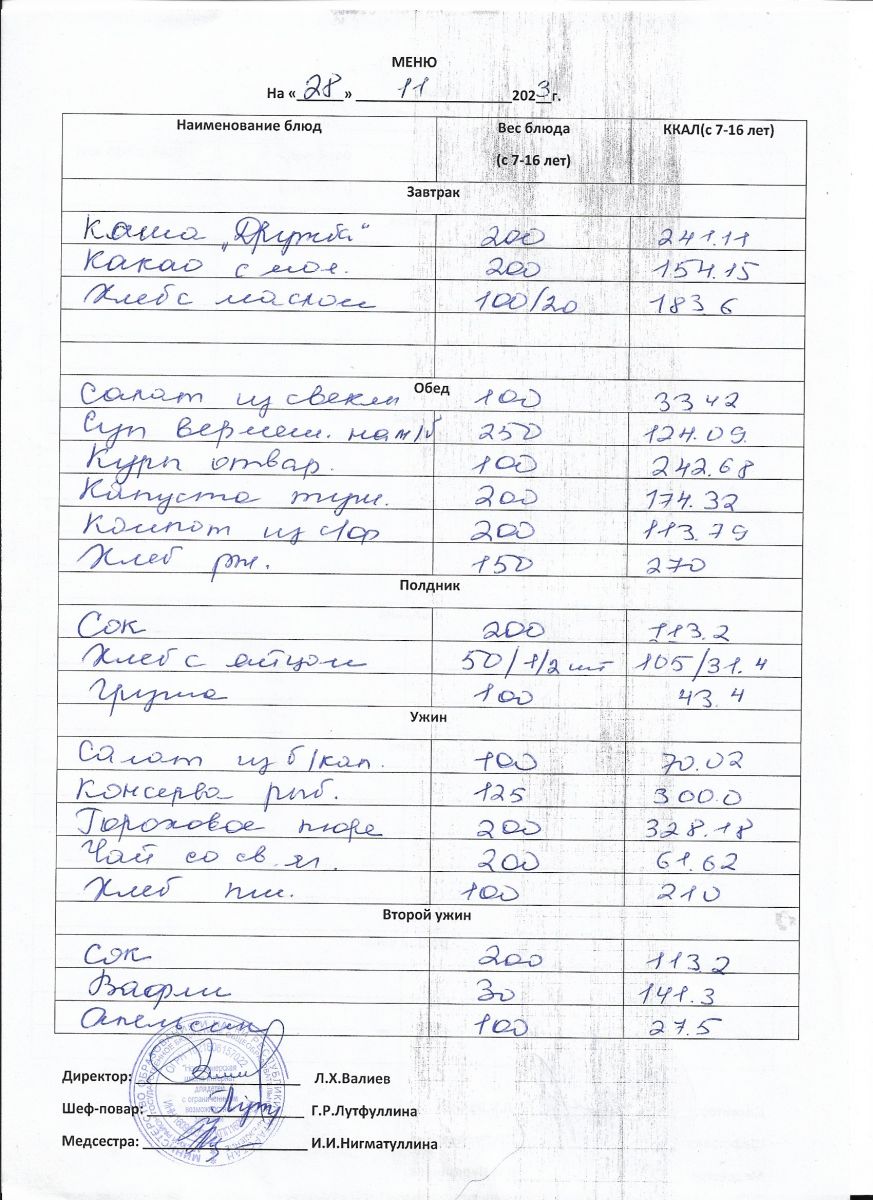 МЕНЮ
На «28» 11 2023г.
Наименование блюд Вес блюда (с 7-16 лет) ККАЛ(с 7-16 лет)
Завтрак
Каша „Дружба“ 200 241.11
Какао с мол. 200 154.15
Хлеб с маслом 100/20 183.6
Обед
Салат из свеклы 100 33 42
Суп вермеш. на м/б 250 124.09.
Куры отвар. 100 242.68
Капуста туш. 200 174.32
Компот из с/ф 200 113.79
Хлеб рж. 150 270
Полдник
Сок 200 113.2
Хлеб с яйцом 50/1/2 шт 105/31.4
Груша 100 43.4
Ужин
Салат из б/кап. 100 70.02
Консерва рыб. 125 300.0
Гороховое пюре 200 328.18
Чай со св. яг. 200 61.62
Хлеб пш. 100 210
Второй ужин
Сок 200 113.2
Вафли 30 141.3
Апельсин 100 27.5
Директор: Л.Х.Валиев
Шеф-повар: Г.Р.Лутфуллина
Медсестра: И.И.Нигматуллина